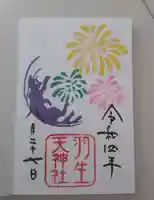 令和四年
羽生
天神社
月二十七日